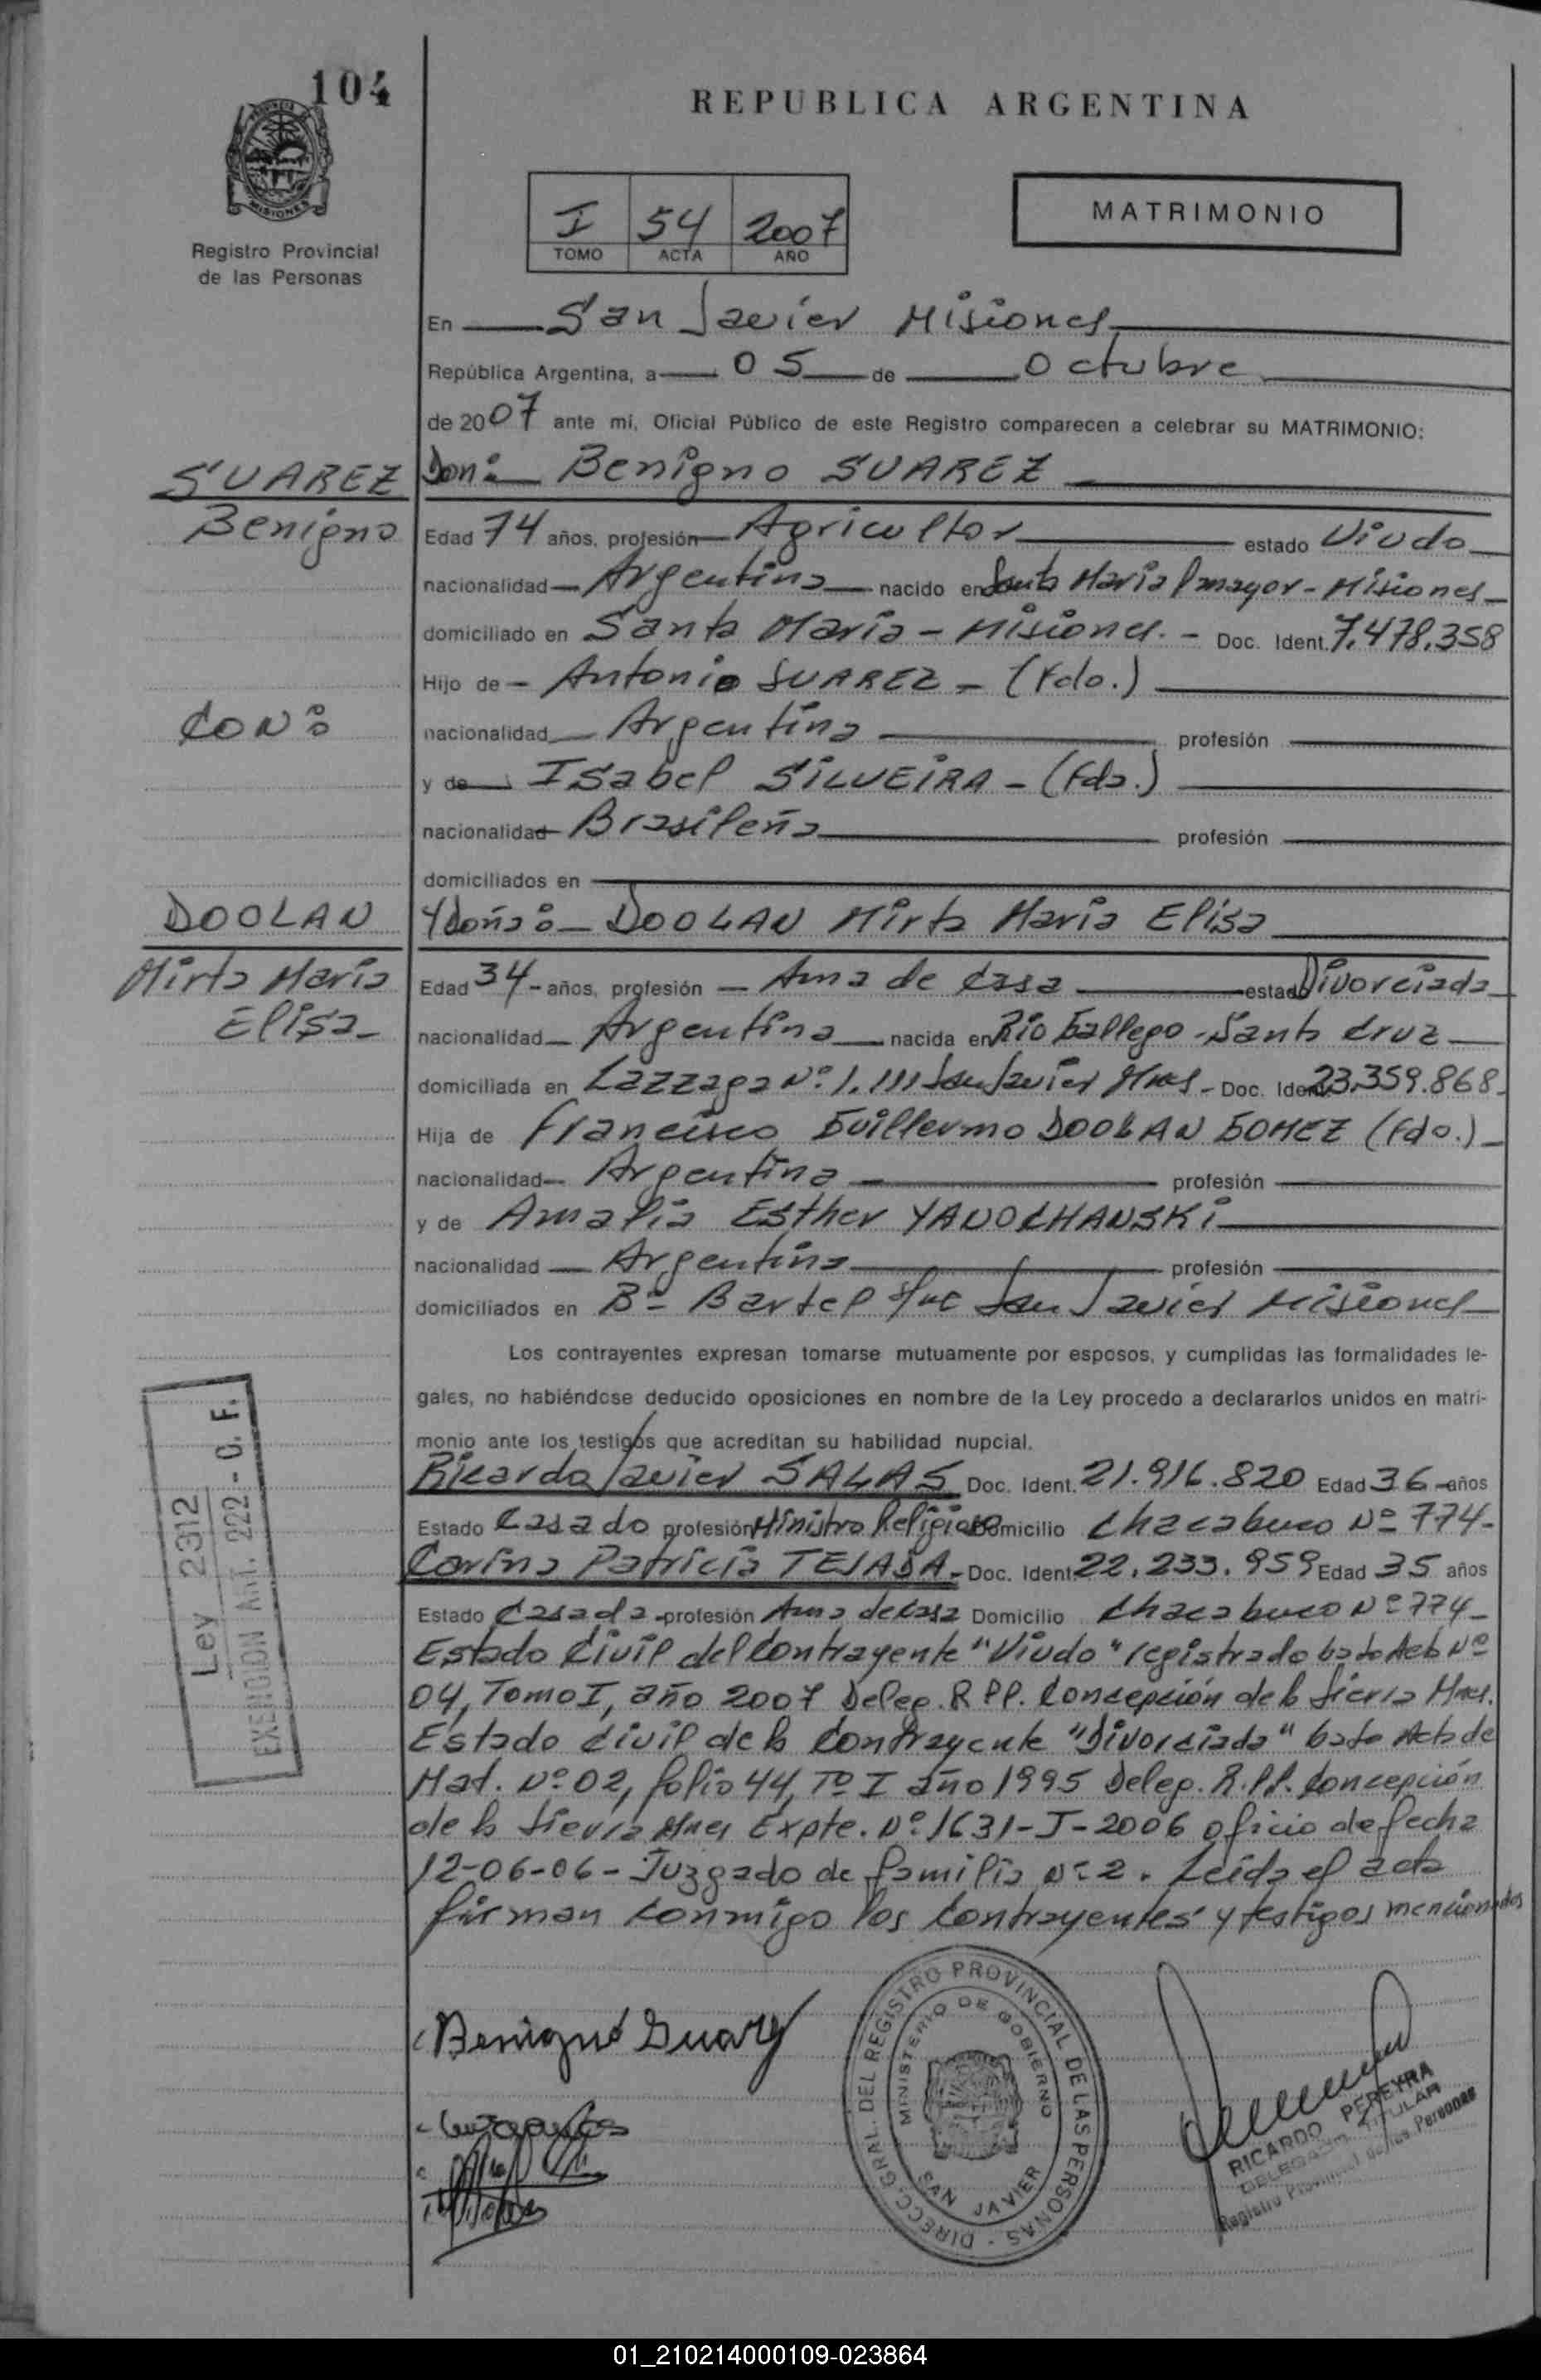 104
REPUBLICA ARGENTINA
PROVINCIA
MISIONES
Registro Provincial
de las Personas
I 54 2007
TOMO ACTA AÑO
MATRIMONIO
En San Javier Misiones
República Argentina, a 05 de Octubre
de 2007 ante mí, Oficial Público de este Registro comparecen a celebrar su MATRIMONIO:
SUAREZ
Benigno
Don: Benigno SUAREZ
Edad 74 años, profesión Agricultor estado Viudo
nacionalidad Argentina nacido en Santa María mayor - Misiones
domiciliado en Santa María - Misiones. - Doc. Ident. 7.478.358
Hijo de - Antonio SUAREZ - (Fdo.)
CON:
nacionalidad Argentina profesión
y de Isabel SILVEIRA - (Fda.)
nacionalidad Brasileña profesión
domiciliados en
DOOLAN
Mirta María
Elisa
Y doña: DOOLAN Mirta María Elisa
Edad 34 - años, profesión - Ama de Casa estado Divorciada
nacionalidad Argentina nacida en Río Gallego - Santa Cruz
domiciliada en Lazzaga Nº 1.111 San Javier Mnes - Doc. Ident. 23.359.868
Hija de Francisco Guillermo DOOLAN GOMEZ (Fdo.)
nacionalidad Argentina profesión
y de Amalia Esther YANOCHANSKI
nacionalidad Argentina profesión
domiciliados en Bº Bartel San Javier Misiones
Los contrayentes expresan tomarse mutuamente por esposos, y cumplidas las formalidades le-
gales, no habiéndose deducido oposiciones en nombre de la Ley procedo a declararlos unidos en matri-
monio ante los testigos que acreditan su habilidad nupcial.
Ricardo Javier SALAS Doc. Ident. 21.916.820 Edad 36 años
Estado Casado profesión Ministro Religioso Domicilio Chacabuco Nº 774-
Carina Patricia TEJADA - Doc. Ident. 22.233.959 Edad 35 años
Estado Casada profesión Ama de Casa Domicilio Chacabuco Nº 774-
Estado Civil del Contrayente "Viudo" registrado bajo Acta Nº
04, Tomo I, año 2007 Deleg. R.P.P. Concepción de la Sierra Mnes.
Estado civil de la Contrayente "Divorciada" bajo Acta de
Mat. Nº 02, folio 44, Tº I año 1995 Deleg. R.P.P. Concepción
de la Sierra Mnes Expte. Nº 1631-J-2006 oficio de fecha
12-06-06 - Juzgado de familia Nº 2. Leída el acta
firman conmigo los Contrayentes y testigos mencionados
Ley 2312
EXENCION ART. 222 - C. F.
Benigno Suarez
DIRECC. GRAL. DEL REGISTRO PROVINCIAL DE LAS PERSONAS
MINISTERIO DE GOBIERNO
SAN JAVIER
RICARDO PEREYRA
DELEGADO TITULAR
Registro Provincial de las Personas
01_210214000109-023864